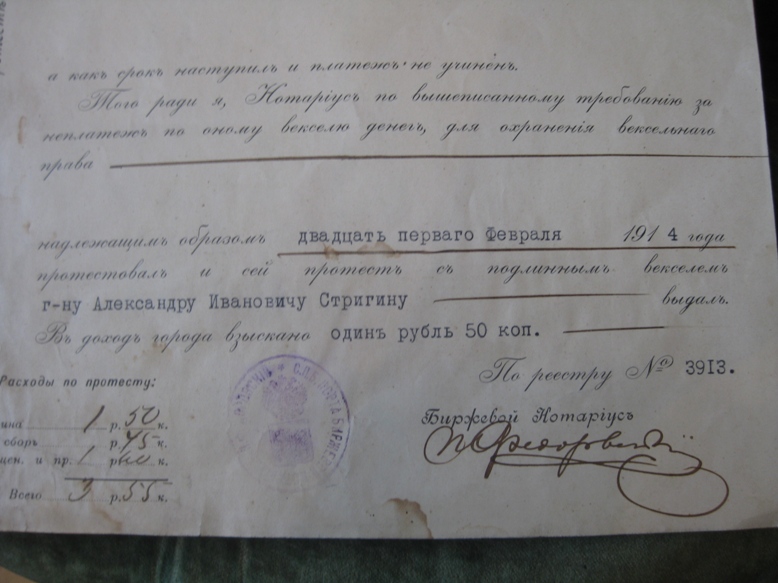 а какъ срокъ наступилъ и платежъ не учиненъ.
Того ради я, Нотаріусъ по вышеписанному требованію за
неплатежъ по оному векселю денегъ, для охраненія вексельнаго
права
надлежащимъ образомъ двадцать перваго Февраля 1914 года
протестовалъ и сей протестъ съ подлиннымъ векселемъ
г-ну Александру Ивановичу Стригину выдалъ.
Въ доходъ города взыскано одинъ рубль 50 коп.
По реестру № 39I3.
Биржевой Нотаріусъ
Расходы по протесту:
1 р. 50 к.
сборъ р. 45 к.
цен. и пр. 1 р. 60 к.
Всего 3 р. 55 к.